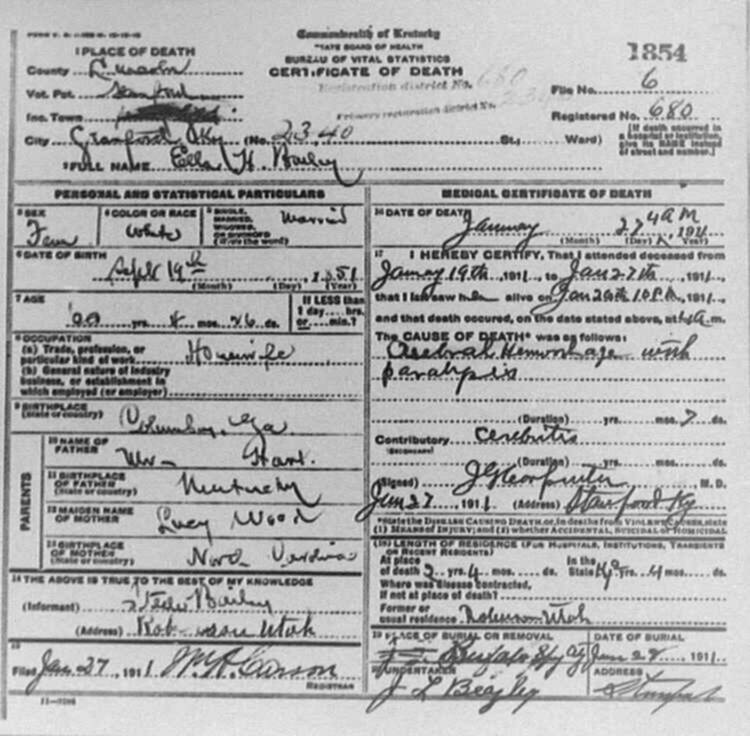 Commonwealth of Kentucky
STATE BOARD OF HEALTH
BUREAU OF VITAL STATISTICS
CERTIFICATE OF DEATH
1854
1 PLACE OF DEATH
County Lincoln
Vot. Pct. Stanford
Inc. Town
City Stanford Ky (No. 2340 St.; Ward)
Registration district No. 680
Primary registration district No. 2340
File No. 6
Registered No. 680
[If death occurred in
a hospital or institution,
give its NAME instead
of street and number.]
2 FULL NAME Ella H. Bailey
PERSONAL AND STATISTICAL PARTICULARS
3 SEX Fem
4 COLOR OR RACE White
5 SINGLE, MARRIED, WIDOWED, OR DIVORCED (Write the word) Married
6 DATE OF BIRTH Sept 19th, 1851
(Month) (Day) (Year)
7 AGE yrs. 4 mos. 26 ds.
If LESS than
1 day... hrs.
or... min.?
8 OCCUPATION
(a) Trade, profession, or
particular kind of work Housewife
(b) General nature of industry
business, or establishment in
which employed (or employer)
9 BIRTHPLACE
(State or country) Columbus, Ga
PARENTS
10 NAME OF
FATHER Mr - Hart.
11 BIRTHPLACE
OF FATHER
(State or country) Kentucky
12 MAIDEN NAME
OF MOTHER Lucy Wood
13 BIRTHPLACE
OF MOTHER
(State or country)
14 THE ABOVE IS TRUE TO THE BEST OF MY KNOWLEDGE
(Informant) Bailey
(Address) Utah
15
Filed Jan 27, 1911 W. H. Carson
REGISTRAR
11-3286
MEDICAL CERTIFICATE OF DEATH
16 DATE OF DEATH January 27 4 AM, 1911
(Month) (Day) (Year)
17 I HEREBY CERTIFY, That I attended deceased from
January 19th, 1911, to Jan 27th, 1911,
that I last saw her alive on Jan 26th 10 P.M., 1911,
and that death occured, on the date stated above, at 4 a.m.
The CAUSE OF DEATH* was as follows:
Cerebral Hemorrhage with
paralysis
(Duration) yrs. mos. 7 ds.
Contributory Cerebritis
(SECONDARY)
(Duration) yrs. mos. ds.
(Signed) J G Carpenter, M. D.
Jan 27, 1911 (Address) Stanford Ky
*State the DISEASE CAUSING DEATH or, in deaths from VIOLENT CAUSES, state
(1) MEANS OF INJURY; and (2) whether ACCIDENTAL, SUICIDAL or HOMICIDAL
(18) LENGTH OF RESIDENCE (FOR HOSPITALS, INSTITUTIONS, TRANSIENTS
OR RECENT RESIDENTS)
At place
of death 2 yrs. 4 mos. ds. In the
State yrs. 4 mos. ds.
Where was disease contracted,
if not at place of death?
Former or
usual residence Robinson Utah
19 PLACE OF BURIAL OR REMOVAL
Buffalo Spg Cy
DATE OF BURIAL
Jan 28, 1911
20 UNDERTAKER
J L Beazley
ADDRESS
Stanford